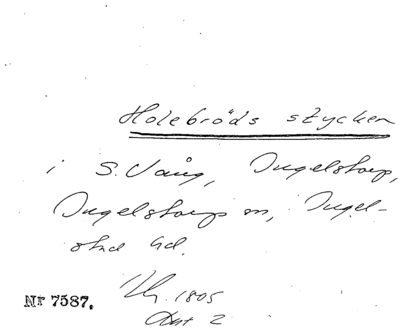 Holebröds stycken
i S. Vång, Ingelstorp,
Ingelstorps sn, Ingel-
stad hd.
1805
Akt 2
Nr 7587.